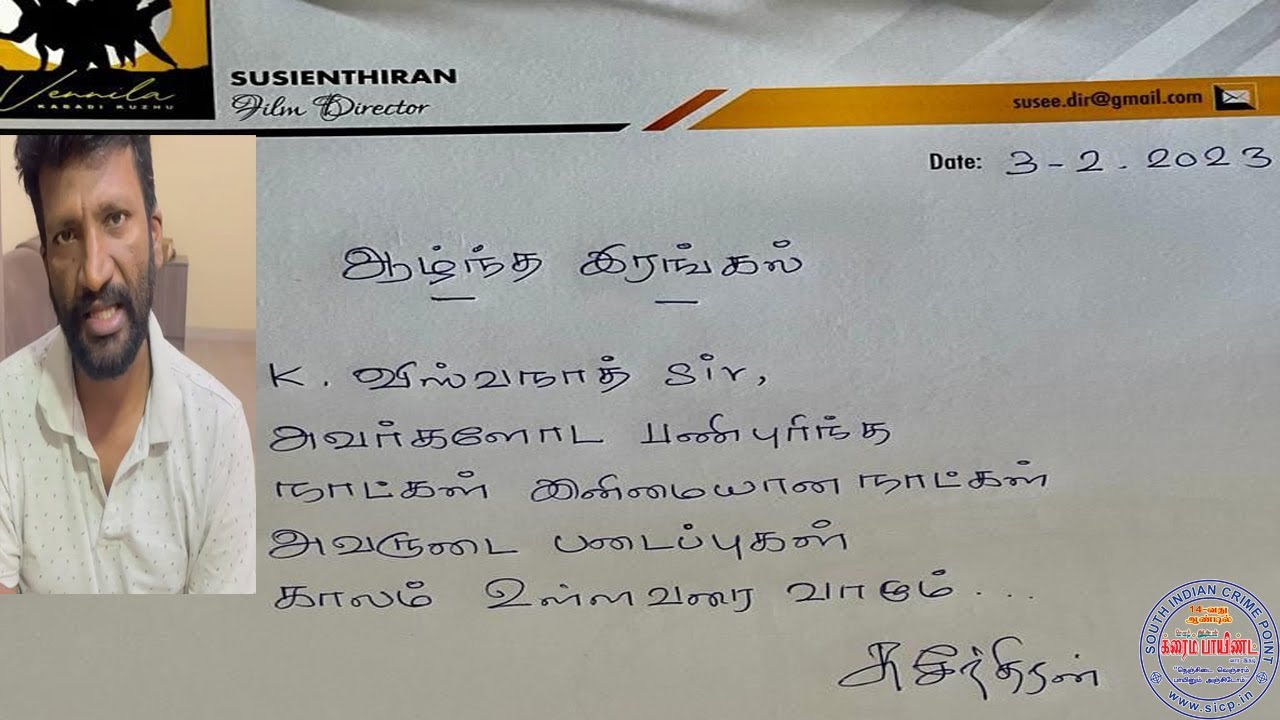 Vennila
KABADI KUZHU
SUSIENTHIRAN
Film Director
susee.dir@gmail.com
Date: 3-2-2023
ஆழ்ந்த இரங்கல்
K. விஸ்வநாத் Sir,
அவர்களோட பணிபுரிந்த
நாட்கள் இனிமையான நாட்கள்
அவருடை படைப்புகள்
காலம் உள்ளவரை வாழும் ...
சுசீந்திரன்
SOUTH INDIAN CRIME POINT
14-வது
ஆண்டில்
க்ரைம் பாயிண்ட்
"நெஞ்சிடை வெஞ்சரம்
பாயினும் அஞ்சிடோம்"
www.sicp.in